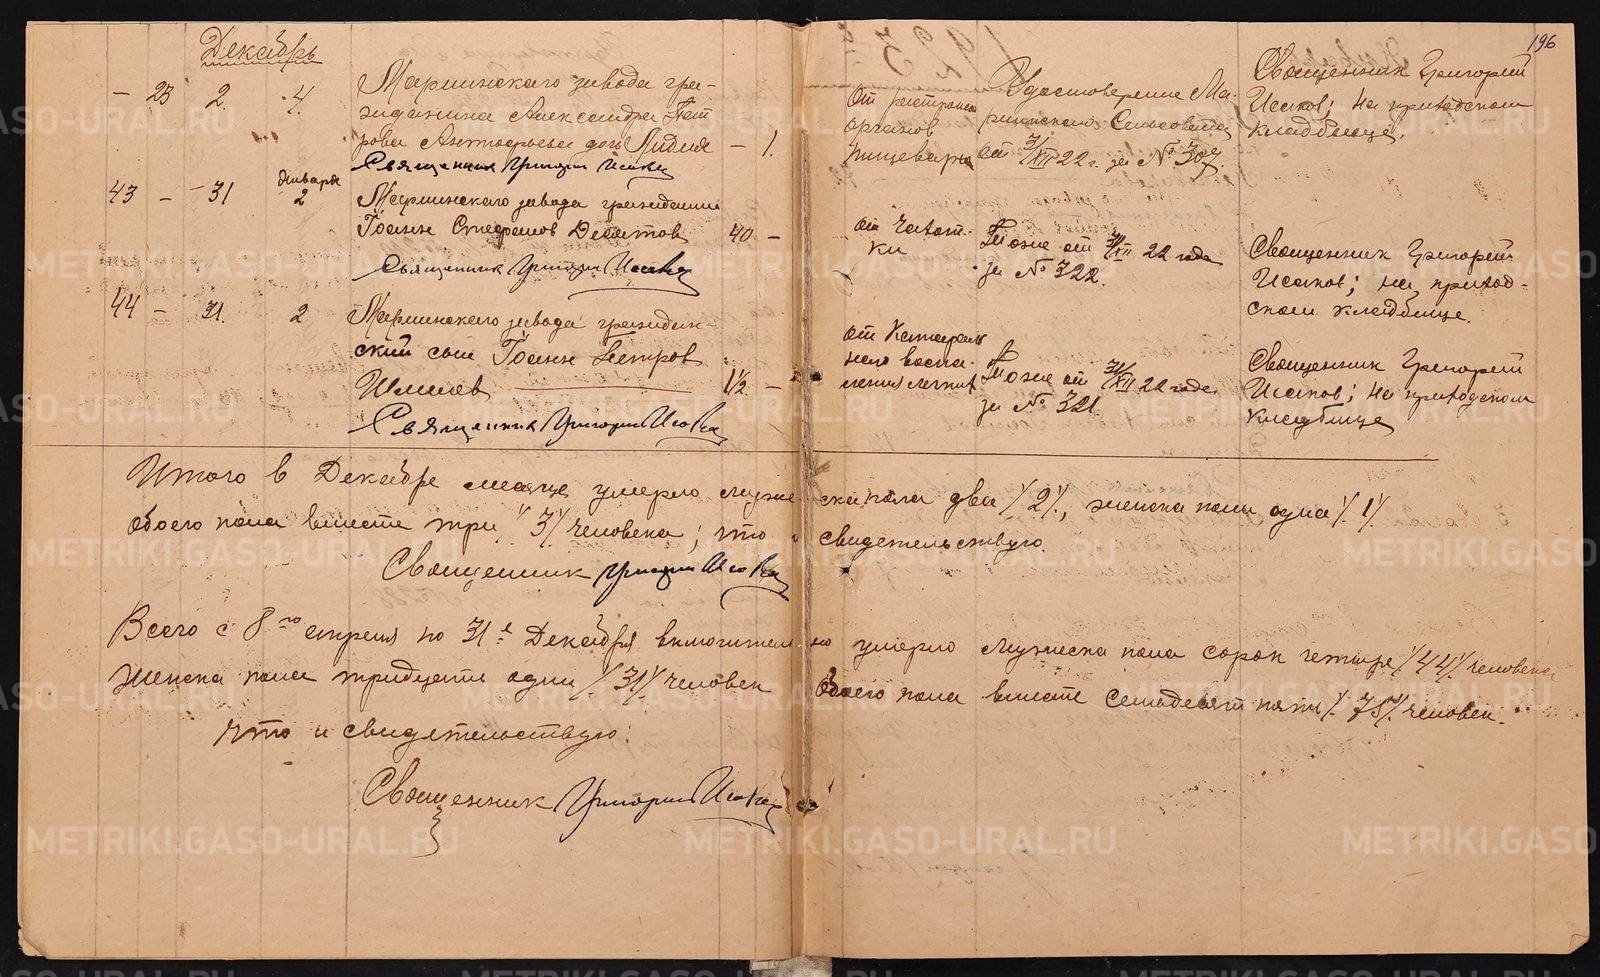 Декабрь
196
– 23 2. 4. Мариинскаго завода гра-
жданина Александра Пет
рова Антоф дочь Лидия – 1.
Священник Григорий Исаков
От растрой
органов
пищевар
Удостоверение Ма-
риинского Сельсовета
от 3/XII 22 г. за № 307.
Священник Григорий
Исаков; на приходском
кладбище.
43 – – 31 Января 2 Мариинскаго завода гражданин
Иоанн Стефанов Десятов 40 –
Священник Григорий Исаков
от Чахот-
ки
Тоже от 31/XII 22 года
за № 322.
Священник Григорий
Исаков; на приход-
ском кладбище.
44 – 31. 2 Мариинскаго завода граждан-
ский сын Иоанн Петров
Шмелев 1½ –
Священник Григорий Исаков
от Катараль
наго воспа-
ления легких
Тоже от 31/XII 22 года
за № 321.
Священник Григорий
Исаков; на приходском
кладбище
Итого в Декабре месяце умерло мужеска пола два /2/, женска пола одна /1/
обоего пола вместе три /3/ человека; что и свидетельствую.
Священник Григорий Исаков
Всего с 8го апреля по 31е Декабря включительно умерло мужеска пола сорок четыре /44/ человека
женска пола тридцать один /31/ человек обоего пола вместе семьдесят пять /75/ человек.
что и свидетельствую.
Священник Григорий Исаков
METRIKI.GASO-URAL.RU